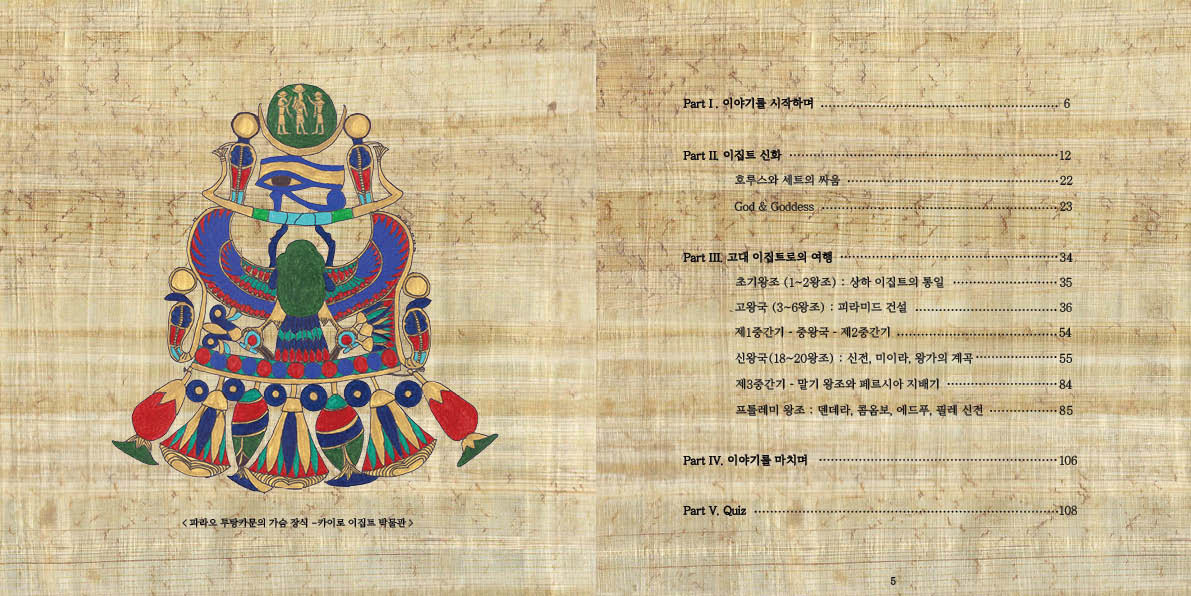 < 파라오 투탕카문의 가슴 장식 -카이로 이집트 박물관 >
Part I. 이야기를 시작하며 6
Part II. 이집트 신화 12
호루스와 세트의 싸움 22
God & Goddess 23
Part III. 고대 이집트로의 여행 34
초기왕조 (1~2왕조) : 상하 이집트의 통일 35
고왕국 (3~6왕조) : 피라미드 건설 36
제1중간기 - 중왕국 - 제2중간기 54
신왕국(18~20왕조) : 신전, 미이라, 왕가의 계곡 55
제3중간기 - 말기 왕조와 페르시아 지배기 84
프톨레미 왕조 : 덴데라, 콤옴보, 에드푸, 필레 신전 85
Part IV. 이야기를 마치며 106
Part V. Quiz 108
5